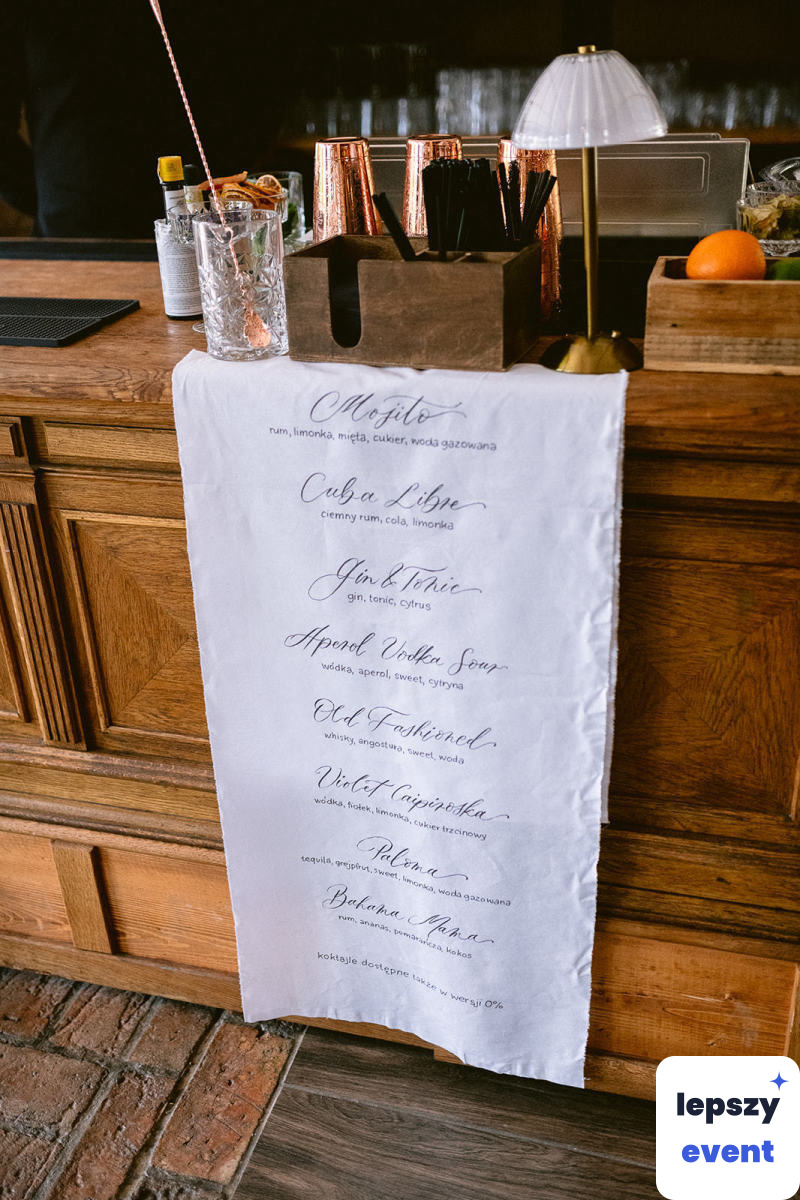 Mojito
rum, limonka, mięta, cukier, woda gazowana
Cuba Libre
ciemny rum, cola, limonka
Gin & Tonic
gin, tonic, cytrus
Aperol Vodka Sour
wódka, aperol, sweet, cytryna
Old Fashioned
whisky, angostura, sweet, woda
Violet Caipiroska
wódka, fiołek, limonka, cukier trzcinowy
Paloma
tequila, grejpfrut, sweet, limonka, woda gazowana
Bahama Mama
rum, ananas, pomarańcza, kokos
koktajle dostępne także w wersji 0%
lepszy
event